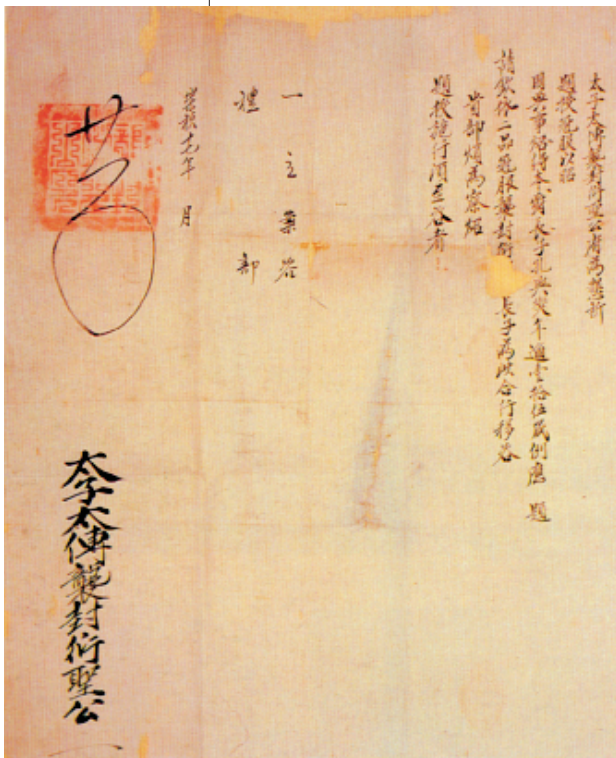 太子太傅襲封衍聖公府為懇祈
題授冠服以招
因典事照得本爵長子孔興燮年適壹拾伍歲例應 題
請欽給二品冠服襲封衍 長子為此合行移咨
貴部煩為察照
題授施行須至咨者
一 立案 咨
禮 部
崇禎十九年 月
太子太傅襲封衍聖公